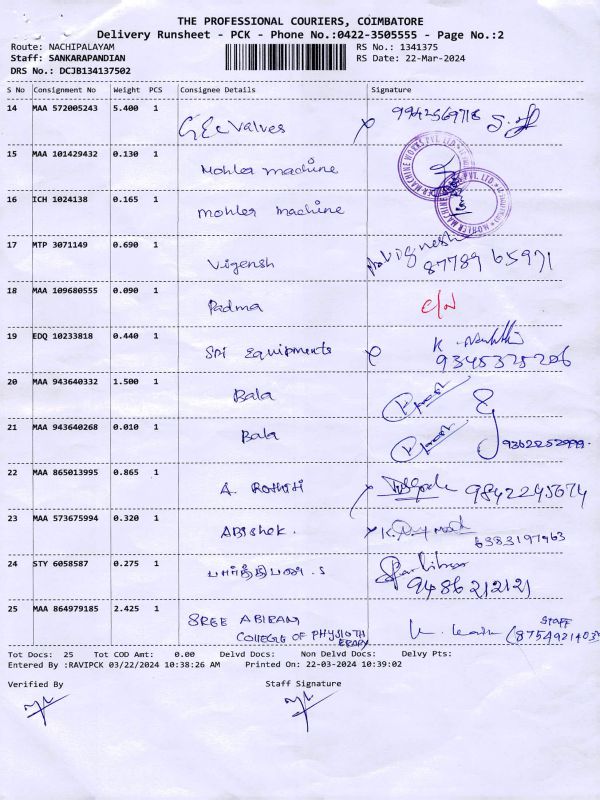 THE PROFESSIONAL COURIERS, COIMBATORE
Delivery Runsheet - PCK - Phone No.:0422-3505555 - Page No.:2
Route: NACHIPALAYAM RS No.: 1341375
Staff: SANKARAPANDIAN RS Date: 22-Mar-2024
DRS No.: DCJB134137502
S No Consignment No Weight PCS Consignee Details Signature
14 MAA 572005243 5.400 1 GEC Valves 9942569718
15 MAA 101429432 0.130 1 Mohler machine
16 ICH 1024138 0.165 1 mohler machine
17 MTP 3071149 0.690 1 Vigensh Vignesh 8778965971
18 MAA 109680555 0.090 1 Padma
19 EDQ 10233818 0.440 1 SRI Equipments K. 9345325206
20 MAA 943640332 1.500 1 Bala
21 MAA 943640268 0.010 1 Bala 9362252999
22 MAA 865013995 0.865 1 A. 9842245674
23 MAA 573675994 0.320 1 ABishek. 6383197963
24 STY 6058587 0.275 1 பார்த்திபன். S 9486212121
25 MAA 864979185 2.425 1 SREE ABIRAMI STAFF
COLLEGE OF PHYSIOTH (8754921403
ERAPY
Tot Docs: 25 Tot COD Amt: 0.00 Delvd Docs: Non Delvd Docs: Delvy Pts:
Entered By :RAVIPCK 03/22/2024 10:38:26 AM Printed On: 22-03-2024 10:39:02
Verified By Staff Signature